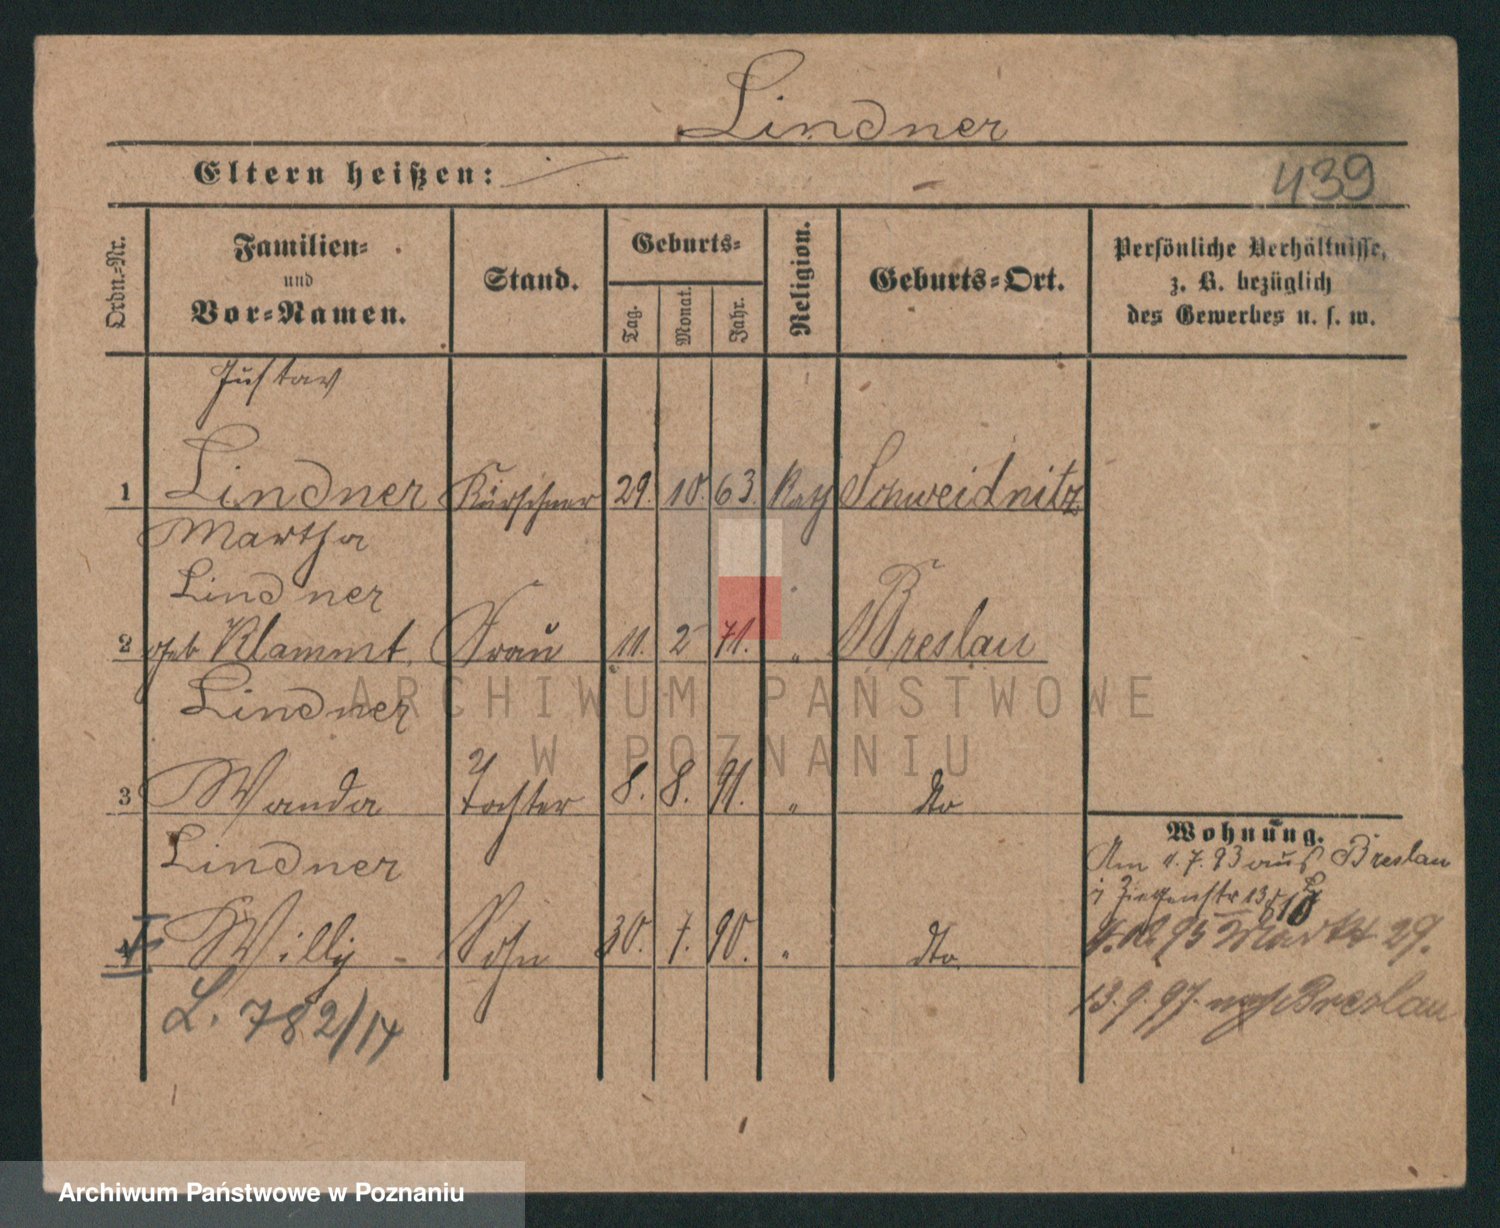 Lindner
Eltern heißen:
439
Ordn.-Nr.
Familien-
und
Vor-Namen.
Stand.
Geburts-
Tag.
Monat.
Jahr.
Religion.
Geburts-Ort.
Persönliche Verhältnisse,
z. B. bezüglich
des Gewerbes u. s. w.
Gustav
1 Lindner Kürschner 29. 10. 63. Kath Schweidnitz
Martha
Lindner
2 geb Klammt. Frau 11. 2 71. " Breslau
Lindner
3 Wanda Tochter 8. 8. 91. " dto
Lindner
4 Willy - Sohn 30. 7. 90. " dto.
L. 782/14
Wohnung.
Am 4.7.93 aus Breslau
Ziegenstr 13
95 Markt 29.
13.9.97. nach Breslau
ARCHIWUM PAŃSTWOWE
W POZNANIU
Archiwum Państwowe w Poznaniu